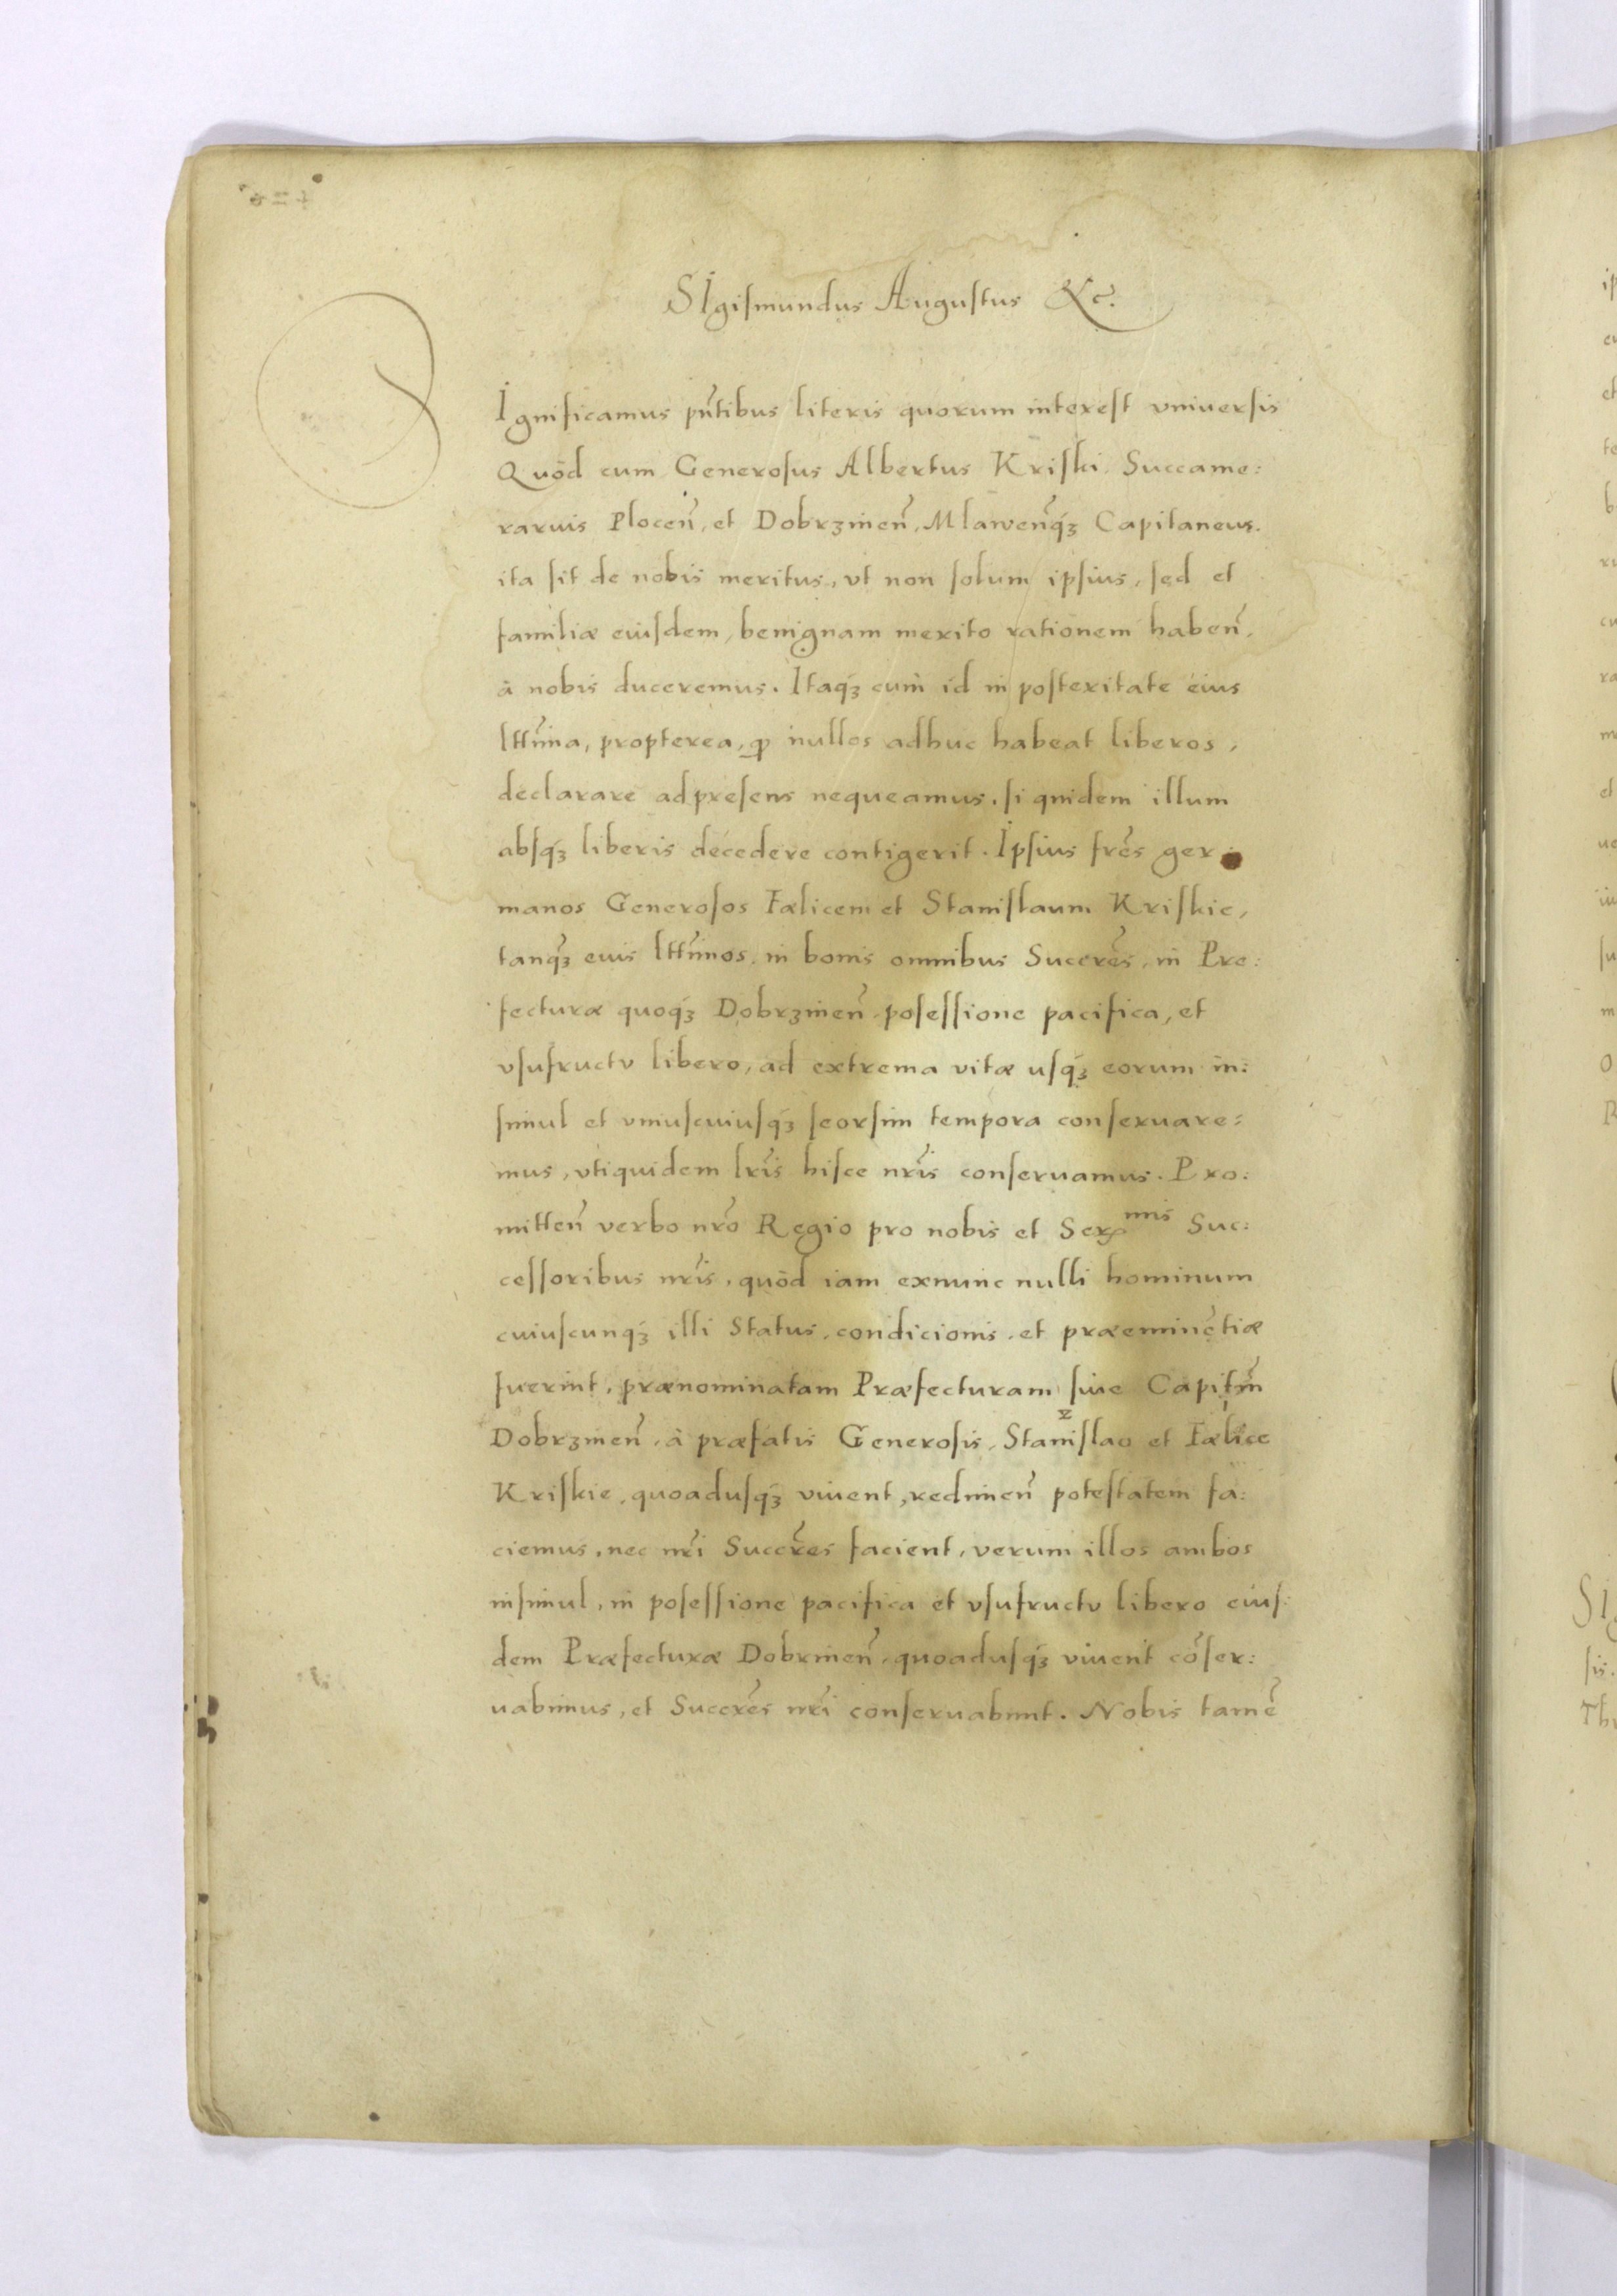 SIgismundus Augustus &c.
SIgnificamus pñtibus literis quorum interest vniuersis
Quòd cum Generosus Albertus Kriski Succame:
rarius Plocen̄, et Dobrzinen̄, Mlawen̄q́ꝫ Capitaneus.
ita sit de nobis meritus, vt non solum ipsius, sed et
familiæ eiusdem, benignam merito rationem haben̄,
à nobis duceremus. Itaq́ꝫ cum id in posteritate eius
ltt̃ima, propterea, ꝙ nullos adhuc habeat liberos,
declarare ad presens nequeamus, si quidem illum
absq́ꝫ liberis decedere contigerit. Ipsius frēs ger:
manos Generosos Fælicem et Stanislaum Kriskie,
tanq̃ꝫ eius ltt̃imos, in bonis omnibus Succrēs, in Pre:
fecturæ quoq́ꝫ Dobrzinen̄ posessione pacifica, et
vsufructv libero, ad extrema vitæ usq́ꝫ eorum in:
simul et vniuscuiusq́ꝫ seorsim tempora conseruare:
mus, vtiquidem lr̃is hisce nr̃is conseruamus. Pro:
mitten̄ verbo nr̃o Regio pro nobis et Ser^mis Suc:
cessoribus nr̃is, quòd iam exnunc nulli hominum
cuiuscunq́ꝫ illi Status, condicionis, et præeminētiæ
fuerint, prænominatam Præfecturam siue Capitm̃
Dobrzinen̄, à præfatis Generosis, Stanislao et Fælice
Kriskie, quoadusq́ꝫ viuent, redimen̄ potestatem fa:
ciemus, nec nr̃i Succrēs facient, verum illos ambos
insimul, in posessione pacifica et vsufructv libero eius:
dem Præfecturæ Dobrinen̄, quoadusq́ꝫ viuent cōser:
uabimus, et Succrēs nr̃i conseruabunt. Nobis tamē